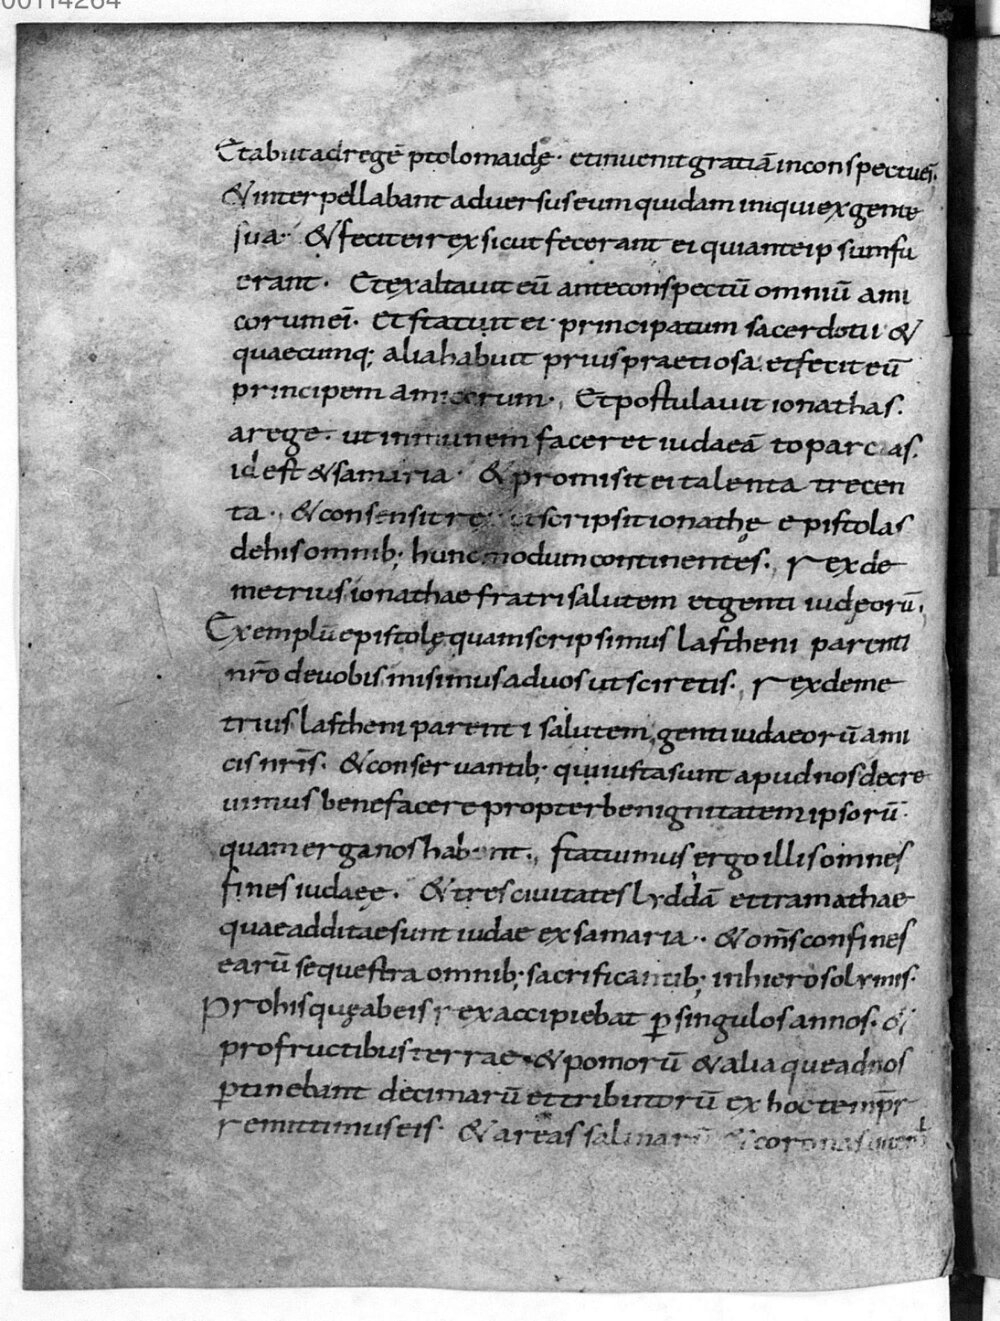 00114264
Et abiit ad regē ptolomaidę · et inuenit gratiā in conspectu eī·
& interpellabant aduersus eum quidam iniqui ex gente
sua· & fecit ei rex sicut fecerant ei qui ante ipsum fu
erant· Et exaltauit eū ante conspectū omniū ami
corum eī· Et statuit ei principatum sacerdotii &
quaecumq; alia habuit prius praetiosa· et fecit eū
principem amicorum· Et postulauit ionathas·
a rege· ut inmunem faceret iudaeā toparcias·
id est & samaria· & promisit ei talenta trecen
ta· & consensit rex et scripsit ionathę epistolas
de his omnib; hunc modum continentes· rex de
metrius ionathae fratri salutem et genti iudęorū,
Exemplū epistolę quam scripsimus lastheni parenti
nr̄o de uobis misimus ad uos ut sciretis· rex deme
trius lastheni parenti salutem, genti iudaeorū ami
cis nr̄is· & conseruantib; qui iusta sunt apud nos decre
uimus benefacere propter benignitatem ipsorū·
quam erga nos habent· statuimus ergo illis omnes
fines iudaeę· & tres ciuitates lyddā et ramathae
quae additae sunt iudae ex samaria· & om̄s confines
earū sequestra omnib; sacrificantib; in hierosolymis·
Pro his quę ab eis rex accipiebat ꝑ singulos annos· &
pro fructibus terrae & pomorū & alia que ad nos
ꝑtinebant decimarū et tributorū ex hoc tempr
remittimus eis· & areas salinarū & coronas